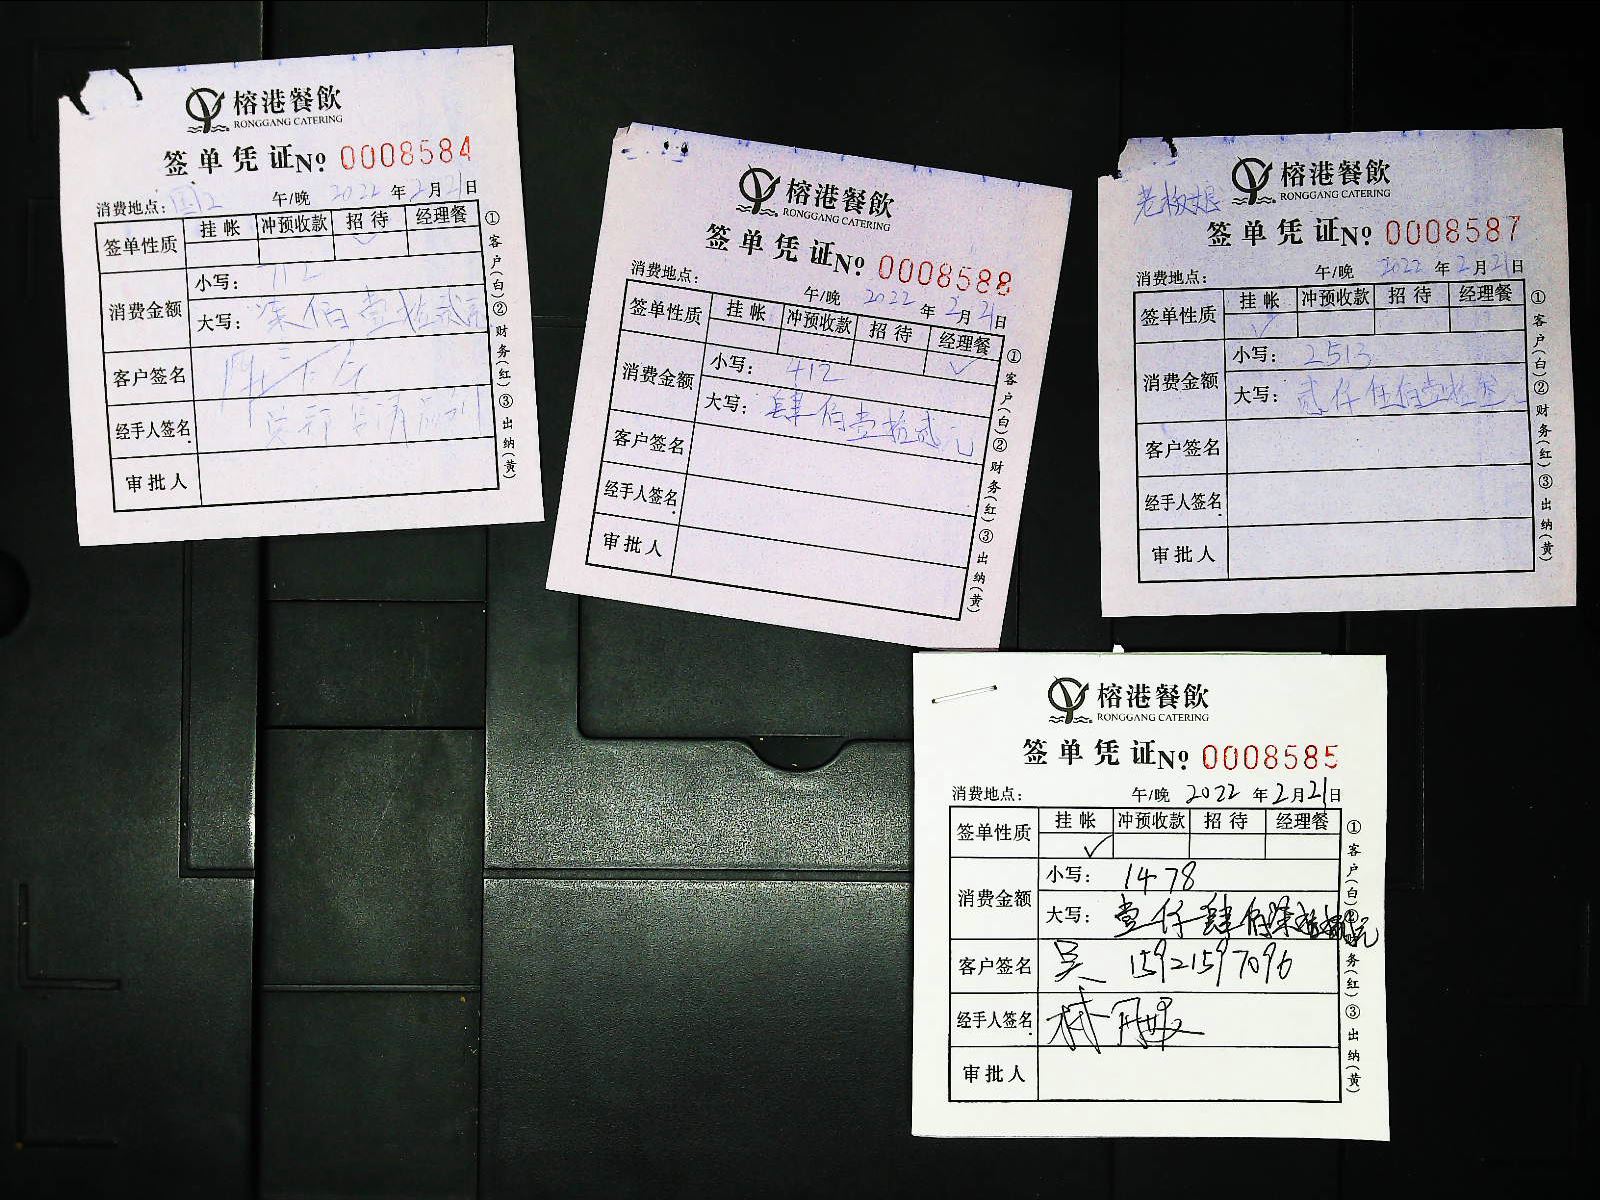 榕港餐飲
RONGGANG CATERING
签单凭证 No 0008584
消费地点: 午/晚 2022年2月21日
签单性质 挂帐 冲预收款 招待 经理餐
✓
消费金额 小写: 712
大写: 柒佰壹拾贰元
客户签名
经手人签名
审批人
①客户(白)②财务(红)③出纳(黄)
榕港餐飲
RONGGANG CATERING
签单凭证 No 0008588
消费地点: 午/晚 2022年2月21日
签单性质 挂帐 冲预收款 招待 经理餐
✓
消费金额 小写: 412
大写: 肆佰壹拾贰元
客户签名
经手人签名
审批人
①客户(白)②财务(红)③出纳(黄)
榕港餐飲
RONGGANG CATERING
老板娘
签单凭证 No 0008587
消费地点: 午/晚 2022年2月21日
签单性质 挂帐 冲预收款 招待 经理餐
✓
消费金额 小写: 2513
大写: 贰仟伍佰壹拾叁元
客户签名
经手人签名
审批人
①客户(白)②财务(红)③出纳(黄)
榕港餐飲
RONGGANG CATERING
签单凭证 No 0008585
消费地点: 午/晚 2022年2月21日
签单性质 挂帐 冲预收款 招待 经理餐
✓
消费金额 小写: 1478
大写: 壹仟肆佰柒拾捌元
客户签名 吴 15921597096
经手人签名
审批人
①客户(白)②财务(红)③出纳(黄)